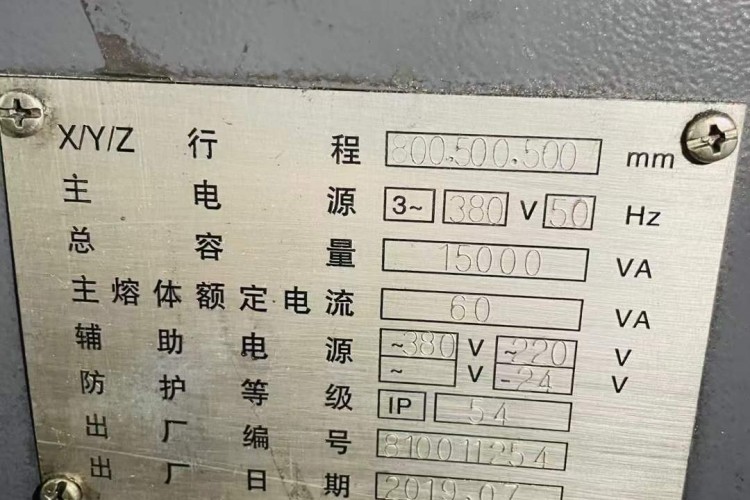 X/Y/Z 行 程 800.500.500 mm
主 电 源 3~ 380 V 50 Hz
总 容 量 15000 VA
主熔体额定电流 60 VA
辅 助 电 源 ~380 V ~220 V
~ V -24 V
防 护 等 级 IP 54
出 厂 编 号 810011254
出 厂 日 期 2019.07